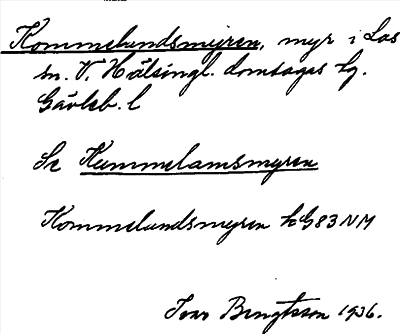 Kommelundsmyren, myr i Los
sn. V. Hälsingl. domsagas hg.
Gävleb. l
Se Kummelamsmyren
Kommelundsmyren kG83NM
Ivar Bengtsson 1936.